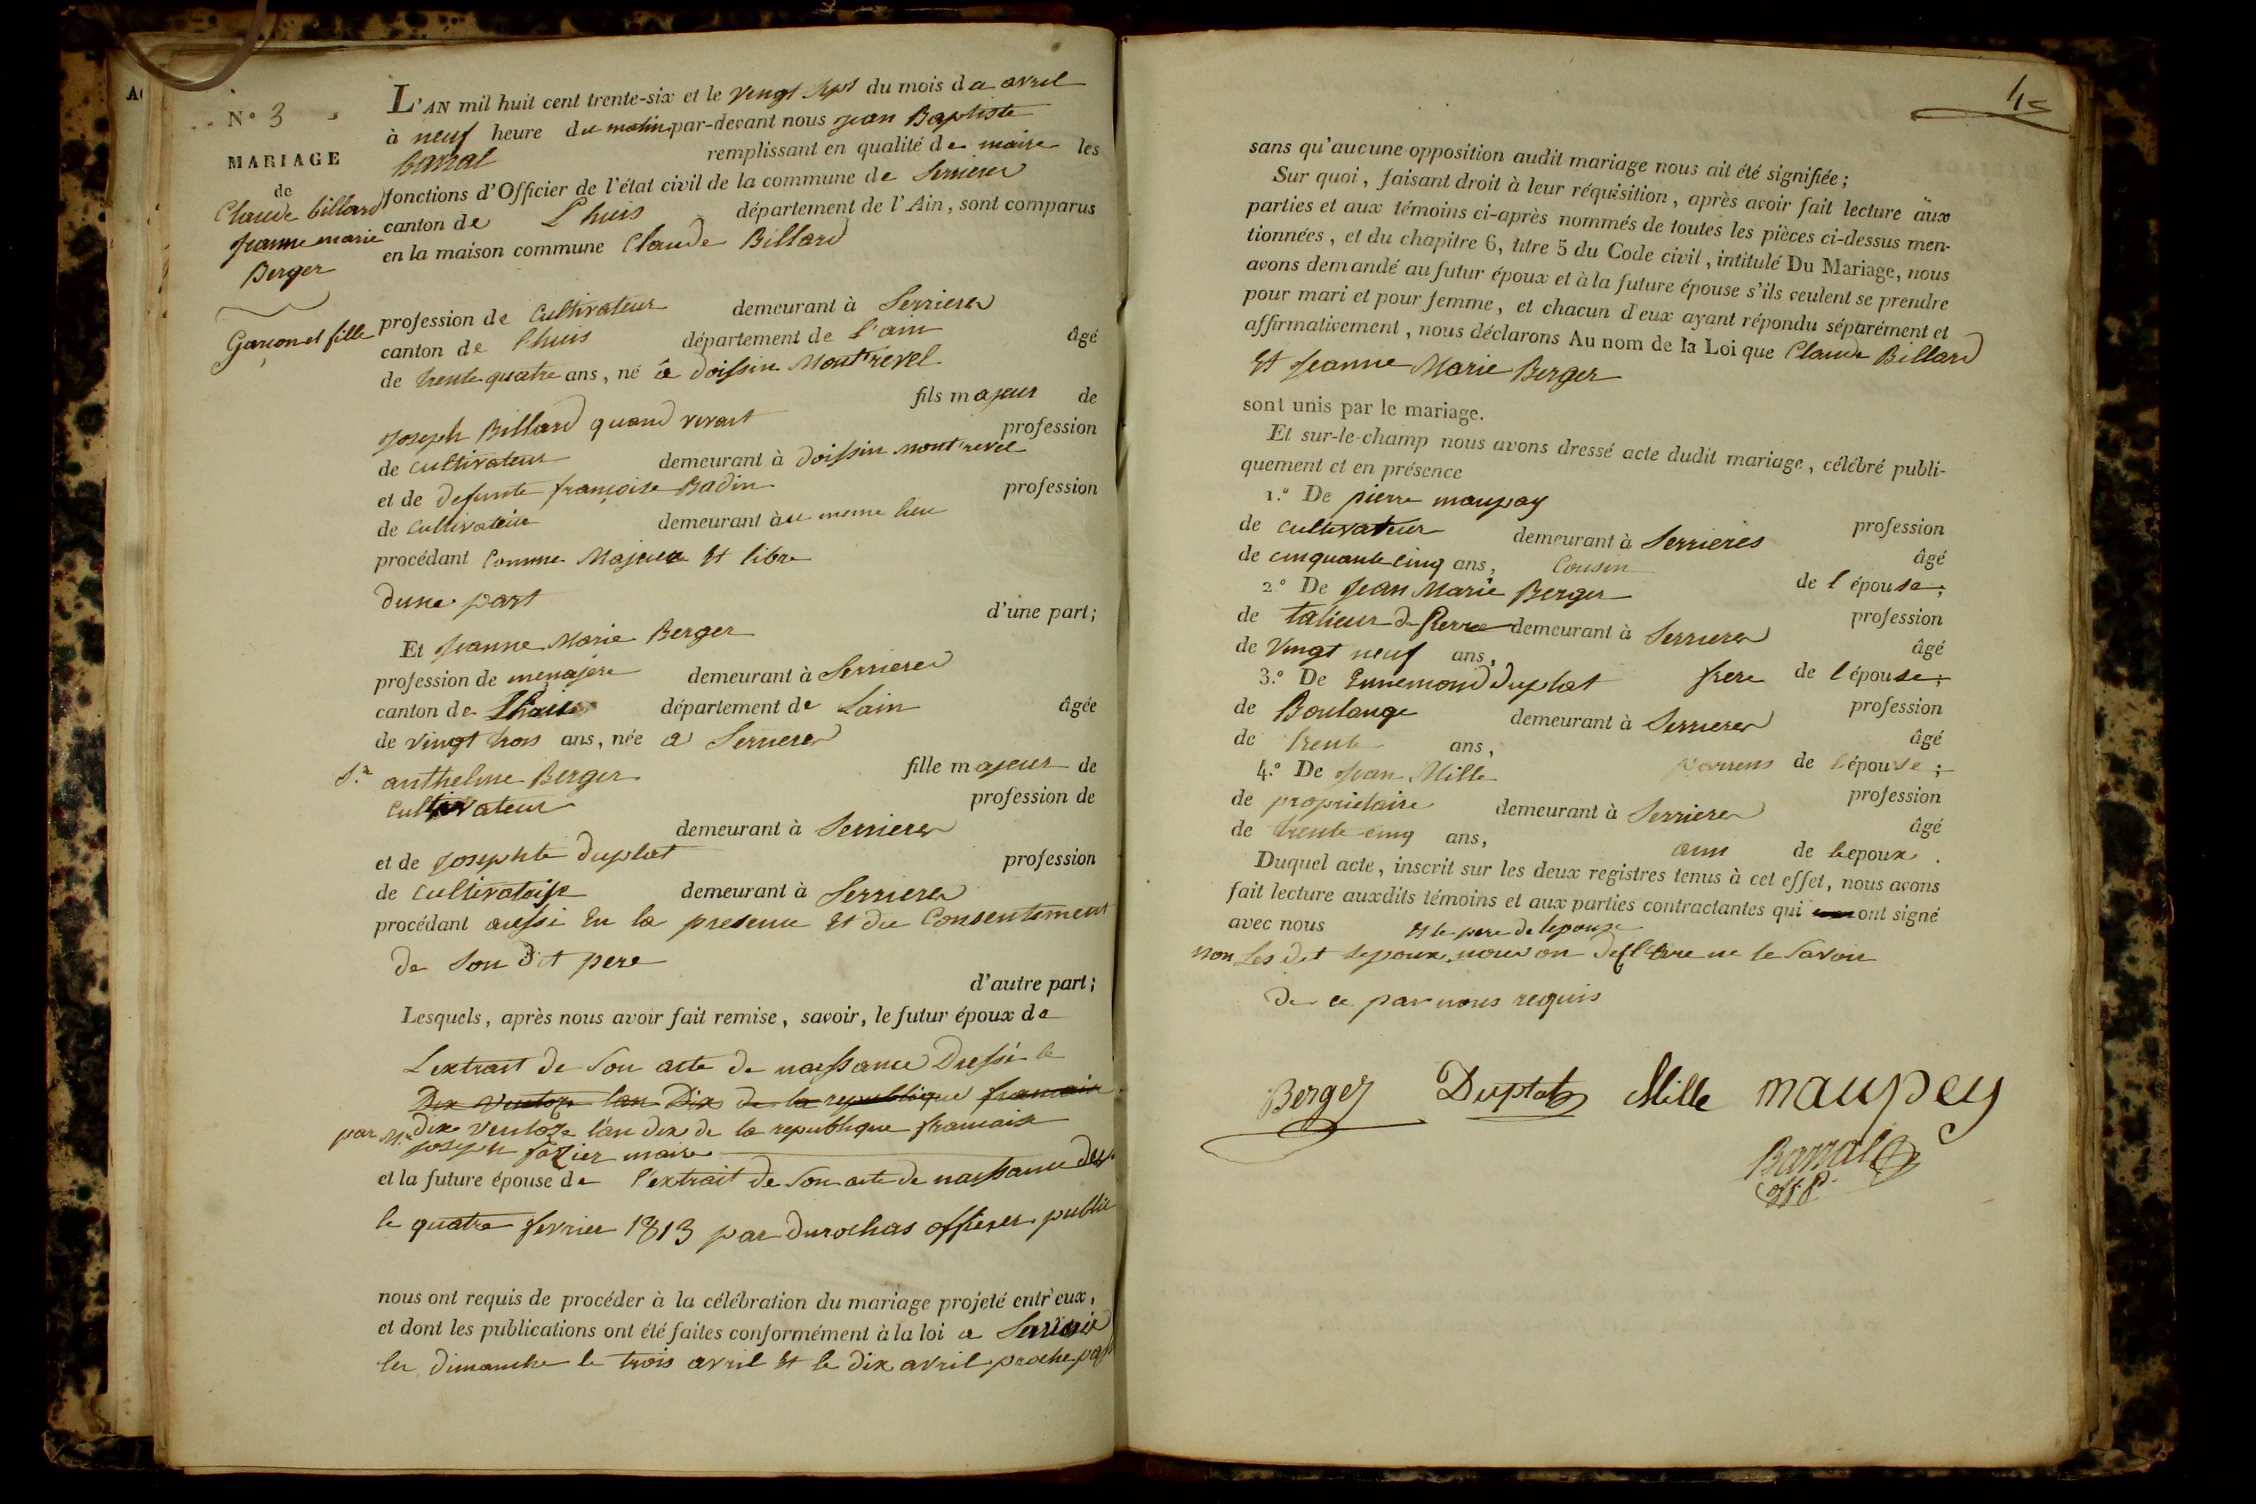 N.° 3
MARIAGE
de
Claude billard
Jeanne marie
Berger
Garcon et fille
L'AN mil huit cent trente-six et le vingt sept du mois da avril
à neuf heure du matin par-devant nous jean Baptiste
Barral remplissant en qualité de maire les
fonctions d'Officier de l'état civil de la commune de Serrieres
canton de Lhuis département de l'Ain, sont comparus
en la maison commune Claude Billard
profession de Cultivateur demeurant à Serrieres
canton de lhuis département de l'ain âgé
de trente quatre ans, né à doissin Montrevel
fils majeur de
joseph Billard quand vivait profession
de cultivateur demeurant à doissin montrevel
et de defunte françoise Badin profession
de cultivatrice demeurant au meme lieu
procédant Comme Majeur Et libre
dune part d'une part;
Et Jeanne Marie Berger
profession de menajere demeurant à Serrieres
canton de Lhuis département de Lain âgée
de vingt trois ans, née a Serrieres
fille majeur de
S.r anthelme Berger profession de
cultivateur
demeurant à Serrieres
et de josephte duplat profession
de cultivatrise demeurant à Serrieres
procédant aussi En la presence Et du Consentement
de Son dit pere
d'autre part;
Lesquels, après nous avoir fait remise, savoir, le futur époux de
Lextrait de Son acte de naissance Dressé le
Dix ventoze lan Dix de la republique francaise
dix ventoze l'an dix de la republique francaise
par Mr joseph fazier maire
et la future épouse de l'extrait de Son acte de naissance
le quatre fevrier 1813 par durochas officier public
nous ont requis de procéder à la célébration du mariage projeté entr'eux,
et dont les publications ont été faites conformément à la loi a
les dimanche le trois avril Et le dix avril proche passé
4
sans qu'aucune opposition audit mariage nous ait été signifiée;
Sur quoi, faisant droit à leur réquisition, après avoir fait lecture aux
parties et aux témoins ci-après nommés de toutes les pièces ci-dessus men-
tionnées, et du chapitre 6, titre 5 du Code civil, intitulé Du Mariage, nous
avons demandé au futur époux et à la future épouse s'ils veulent se prendre
pour mari et pour femme, et chacun d'eux ayant répondu séparément et
affirmativement, nous déclarons Au nom de la Loi que Claude Billard
Et Jeanne Marie Berger
sont unis par le mariage.
Et sur-le-champ nous avons dressé acte dudit mariage, célébré publi-
quement et en présence
1.° De pierre maupay profession
de cultivateur demeurant à Serrieres âgé
de cinquante cinq ans, Cousin de l'épouse;
2.° De Jean Marie Berger profession
de talieur de Pierre demeurant à Serrieres âgé
de vingt neuf ans, frere de l'épouse;
3.° De Ennemond duplat profession
de Boulange demeurant à Serrieres âgé
de trente ans, parrens de lépouse;
4.° De Jean Mille profession
de proprietaire demeurant à Serrieres âgé
de trente cinq ans, ami de lepoux.
Duquel acte, inscrit sur les deux registres tenus à cet effet, nous avons
fait lecture auxdits témoins et aux parties contractantes qui ont signé
avec nous Et le pere de lepouse
non Les dit lepoux nous on declare ne le Savoir
de ce par nous requis
Berger Duplat Mille maupey
Barral
off. P.